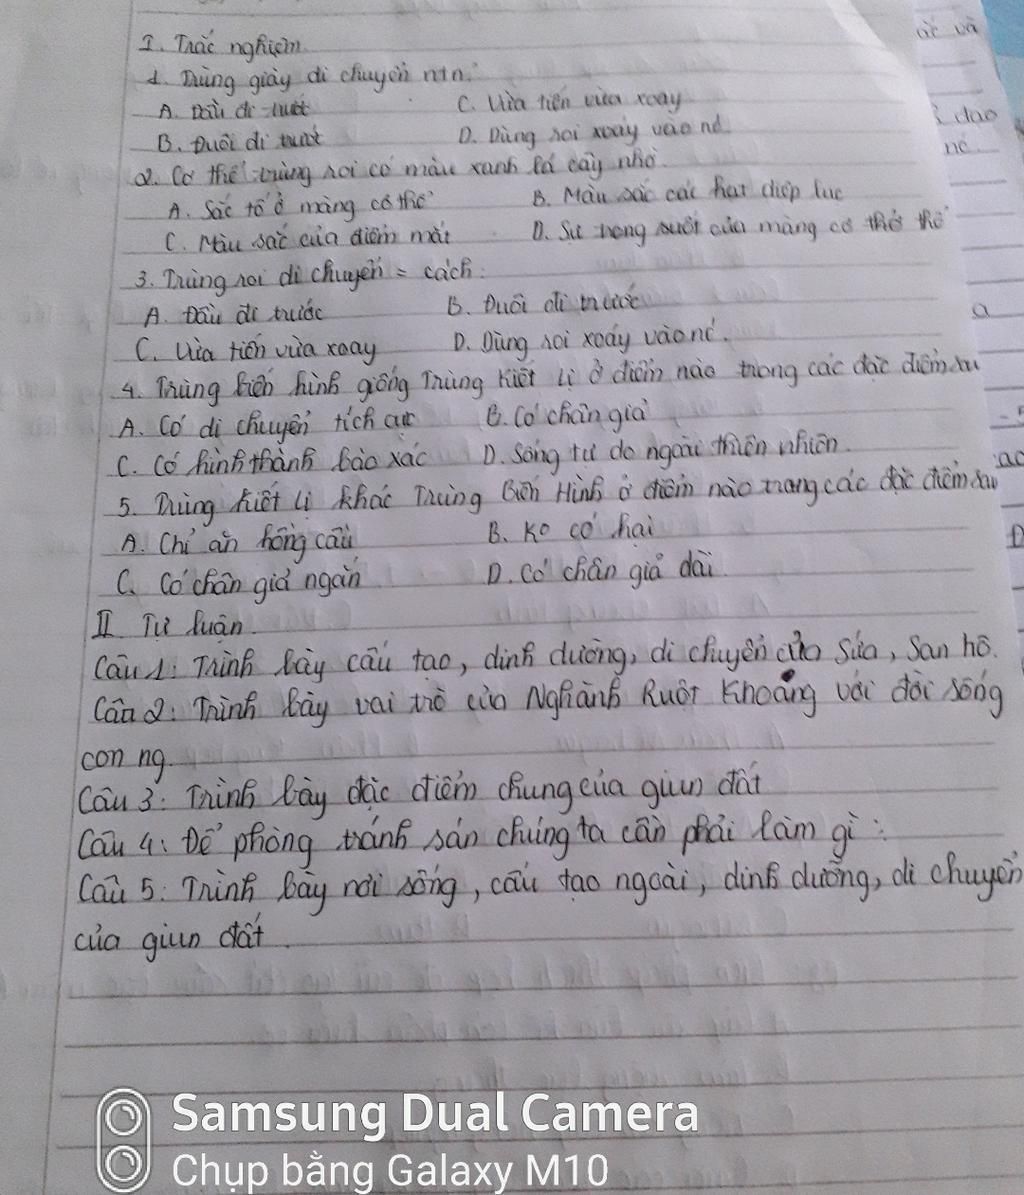 I. Trắc nghiệm
1. Trùng giày di chuyển ntn.
A. Đầu đi trước
C. Vừa tiến vừa xoay
B. Đuôi đi trước
D. Dùng roi xoáy vào nc
2. Cơ thể trùng roi có màu xanh lá cây nhờ.
A. Sắc tố ở màng cơ thể
B. Màu sắc các hạt diệp lục
C. Màu sắc của điểm mắt
D. Sự trong suốt của màng cơ thể
3. Trùng roi di chuyển = cách:
A. Đầu đi trước
B. Đuôi đi trước
C. Vừa tiến vừa xoay
D. Dùng roi xoáy vào nc.
4. Trùng biến hình giống Trùng Kiết lị ở điểm nào trong các đặc điểm sau
A. Có di chuyển tích cực
B. Có chân giả
C. Có hình thành bào xác
D. Sống tự do ngoài thiên nhiên.
5. Trùng kiết lị khác Trùng Biến Hình ở điểm nào trong các đặc điểm sau
A. Chỉ ăn hồng cầu
B. Ko có hại
C. Có chân giả ngắn
D. Có chân giả dài.
II Tự luận.
Câu 1: Trình bày cấu tạo, dinh dưỡng, di chuyển của Sứa, San hô.
Câu 2: Trình bày vai trò của Nghành Ruột Khoang với đời sống
con ng.
Câu 3: Trình bày đặc điểm chung của giun đất
Câu 4: Để phòng tránh sán chúng ta cần phải làm gì:
Câu 5: Trình bày nơi sống, cấu tạo ngoài, dinh dưỡng, di chuyển
của giun đất.
Samsung Dual Camera
Chụp bằng Galaxy M10